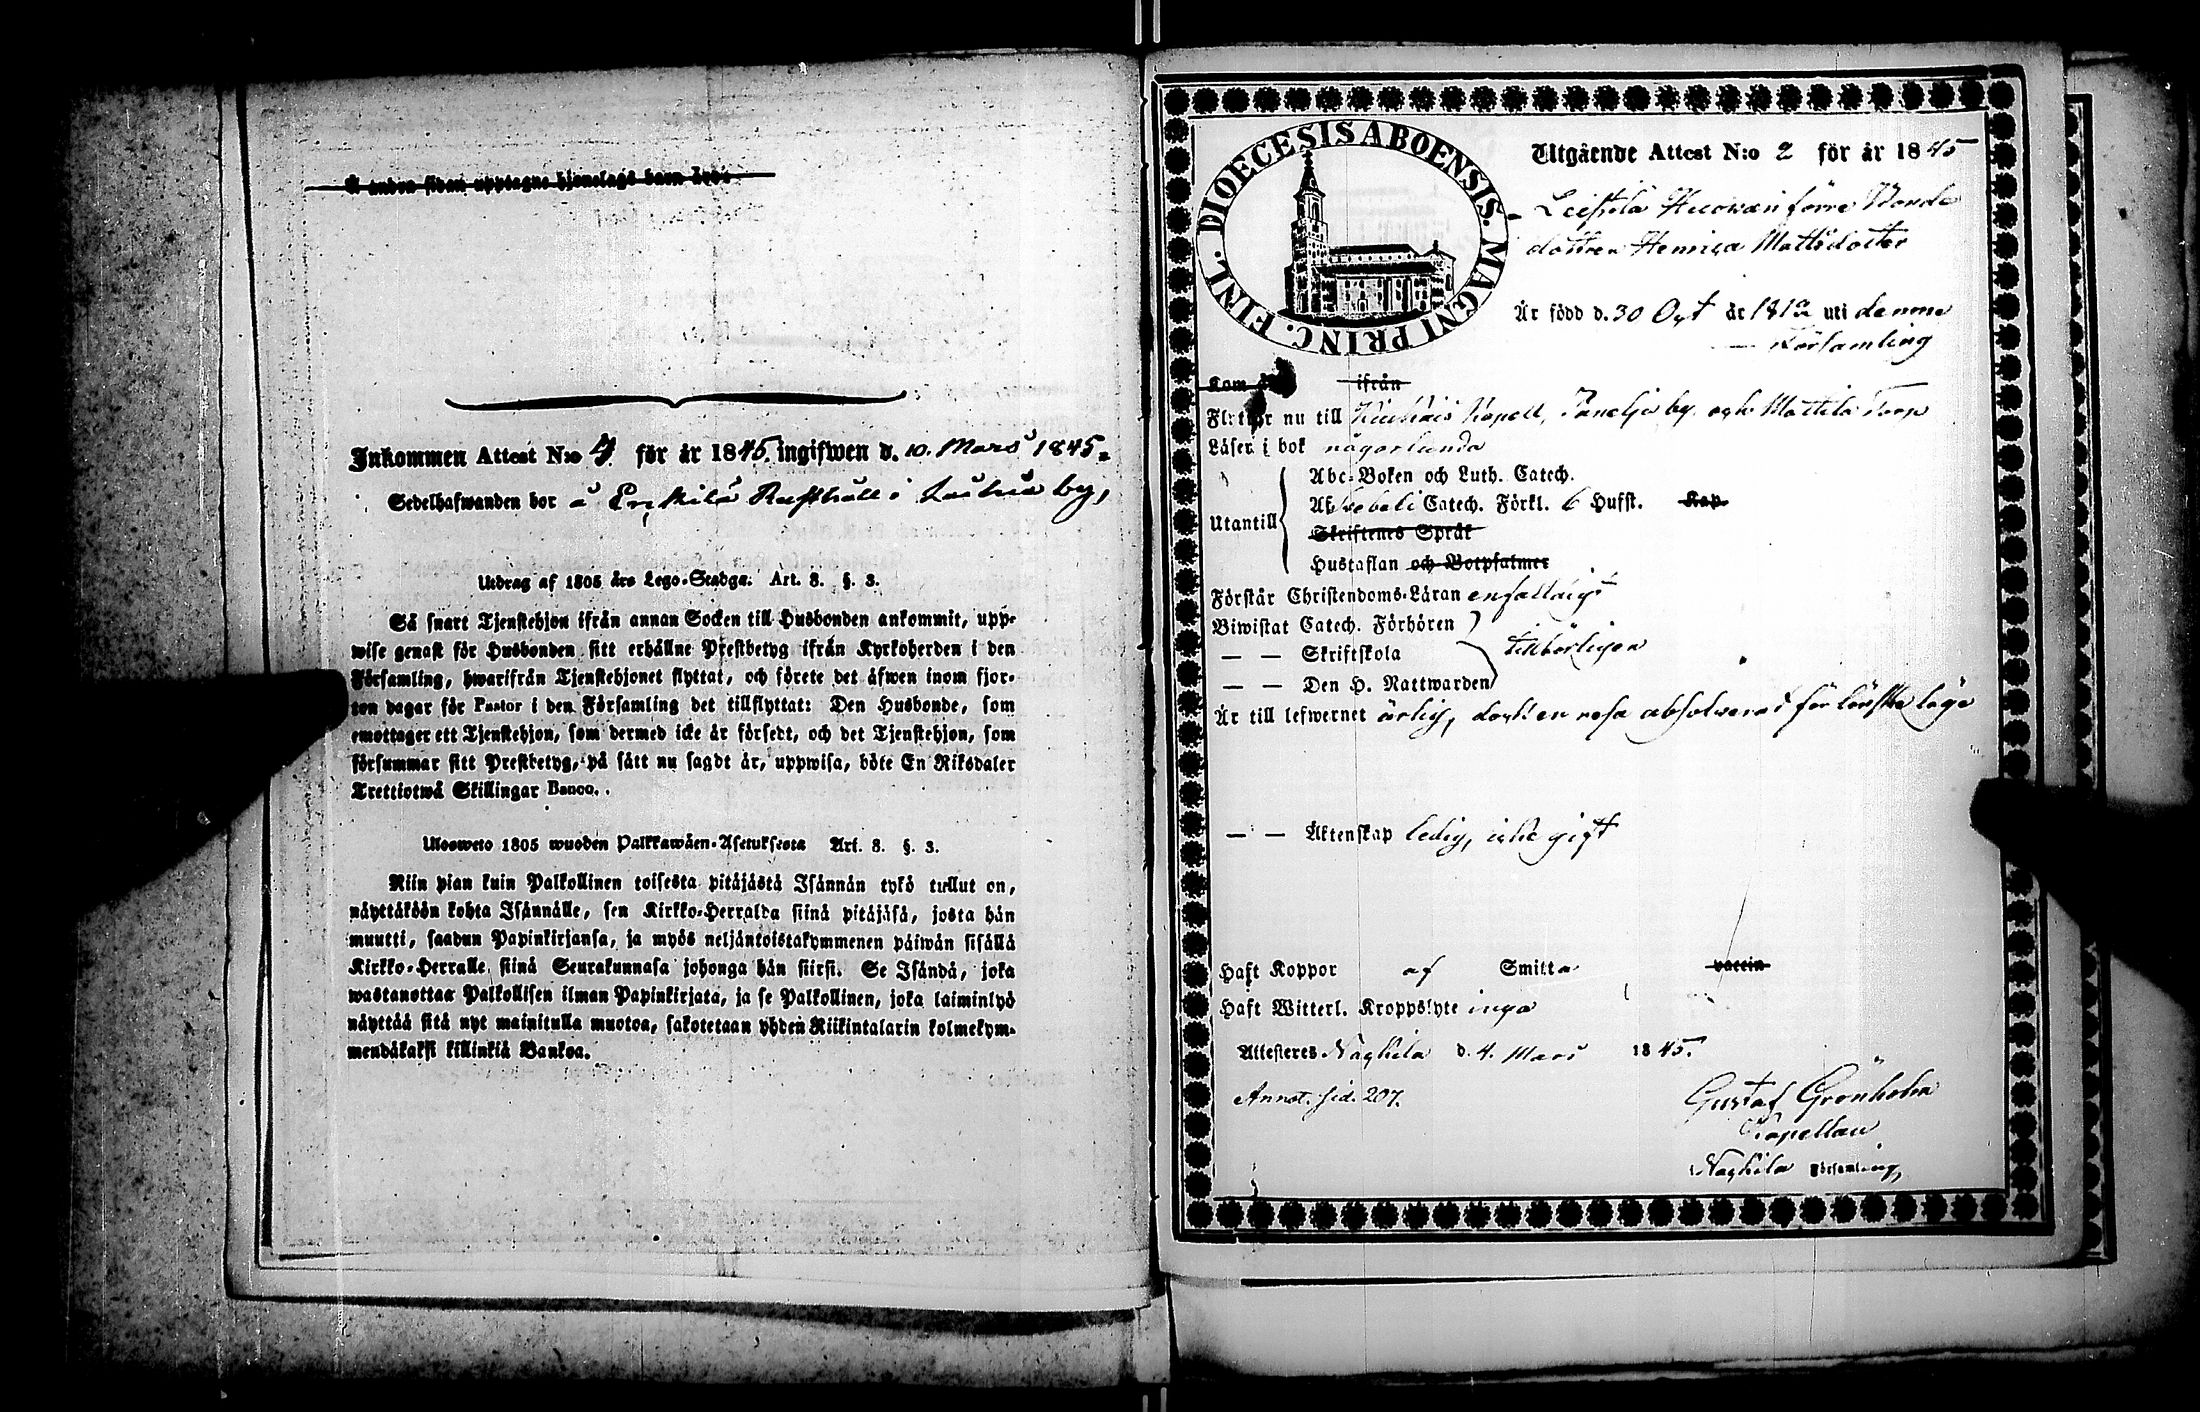 Å andra sidan upptagne hjonelags barn äro:
Inkommen Attest N:o 4 för år 1845. ingifwen d. 10. Mars 1845.
Sedelhafwanden bor å Erkkilä Rusthåll i by,
Utdrag af 1805 års Lego-Stadga. Art. 8. §. 3.
Så snart Tjenstehjon ifrån annan Socken till Husbonden ankommit, upp-
wise genast för Husbonden sitt erhållne Prestbetyg ifrån Kyrkoherden i den
Församling, hwarifrån Tjenstehjonet flyttat, och förete det äfwen inom fjor-
ton dagar för Pastor i den Församling det tillflyttat: Den Husbonde, som
emottager ett Tjenstehjon, som dermed icke är försedt, och det Tjenstehjon, som
försummar sitt Prestbetyg, på sätt nu sagdt är, uppwisa, böte En Riksdaler
Trettiotwå Skillingar Banco.
Ulosweto 1805 wuoden Palkkawäen-Asetuksesta Art. 8. §. 3.
Niin pian kuin Palkollinen toisesta pitäjästä Isännän tykö tullut on,
näyttäköön kohta Isännälle, sen Kirkko-Herralda siinä pitäjäsä, josta hän
muutti, saadun Papinkirjansa, ja myös neljäntoistakymmenen päiwän sisällä
Kirkko-Herralle siinä Seurakunnasa johonga hän siirsi. Se Isändä, joka
wastanottaa Palkollisen ilman Papinkirjata, ja se Palkollinen, joka laiminlyö
näyttää sitä nyt mainitulla muotoa, sakotetaan yhden Riikintalarin kolmekym-
mendäkaksi killinkiä Bankoa.
DIOECESIS ABOENSIS. MAGNI PRINC. FINL.
Utgående Attest N:o 2 för år 1845
Leistilä Huowari förre Bonde
dottren Henrica Mattsdotter
Är född d. 30 Oct år 1812 uti denne
Församling
Kom år ifrån
Flyttar nu till Kiukais Kapell, Panelia by och Mattila Torp
Läser i bok någorlunda
Utantill
Abc-Boken och Luth. Catech.
Catech. Förkl. 6 Hufst. Kap.
Skriftenes Språk
Hustaflan och Botpsalmer
Förstår Christendoms-Läran enfalldigt
Biwistat Catech. Förhören
— — Skriftskola tillbörligen
— — Den H. Nattwarden
Är till lefwernet ärlig, dock en resa absolverad för lönskaläge
— — Äktenskap ledig, icke gift
Haft Koppor af Smitta vaccin
Haft Witterl. Kroppslyte inga
Attesteres Nackila d. 4. Mars 1845.
Annot. sid. 207.
Gustaf Grönholm
Kapellan
i Nackila Församling,